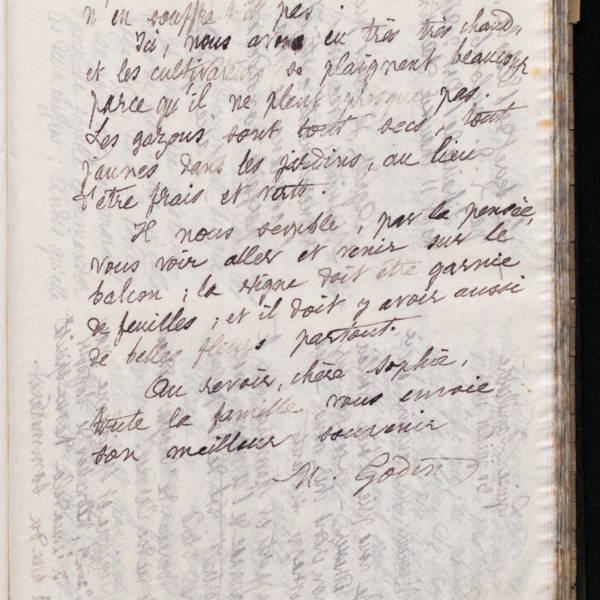 n'en souffre-t-il pas.
Ici, nous avons eu très très chaud,
et les cultivateurs se plaignent beaucoup
parce qu'il ne pleut presque pas.
Les gazons sont tout secs, tout
jaunes dans les jardins, au lieu
d'être frais et verts.
Il nous semble, par la pensée,
vous voir aller et venir sur le
balcon ; la vigne doit être garnie
de feuilles ; et il doit y avoir aussi
de belles fleurs partout.
Au revoir, chère Sophie,
toute la famille vous envoie
son meilleur souvenir
M. Godin